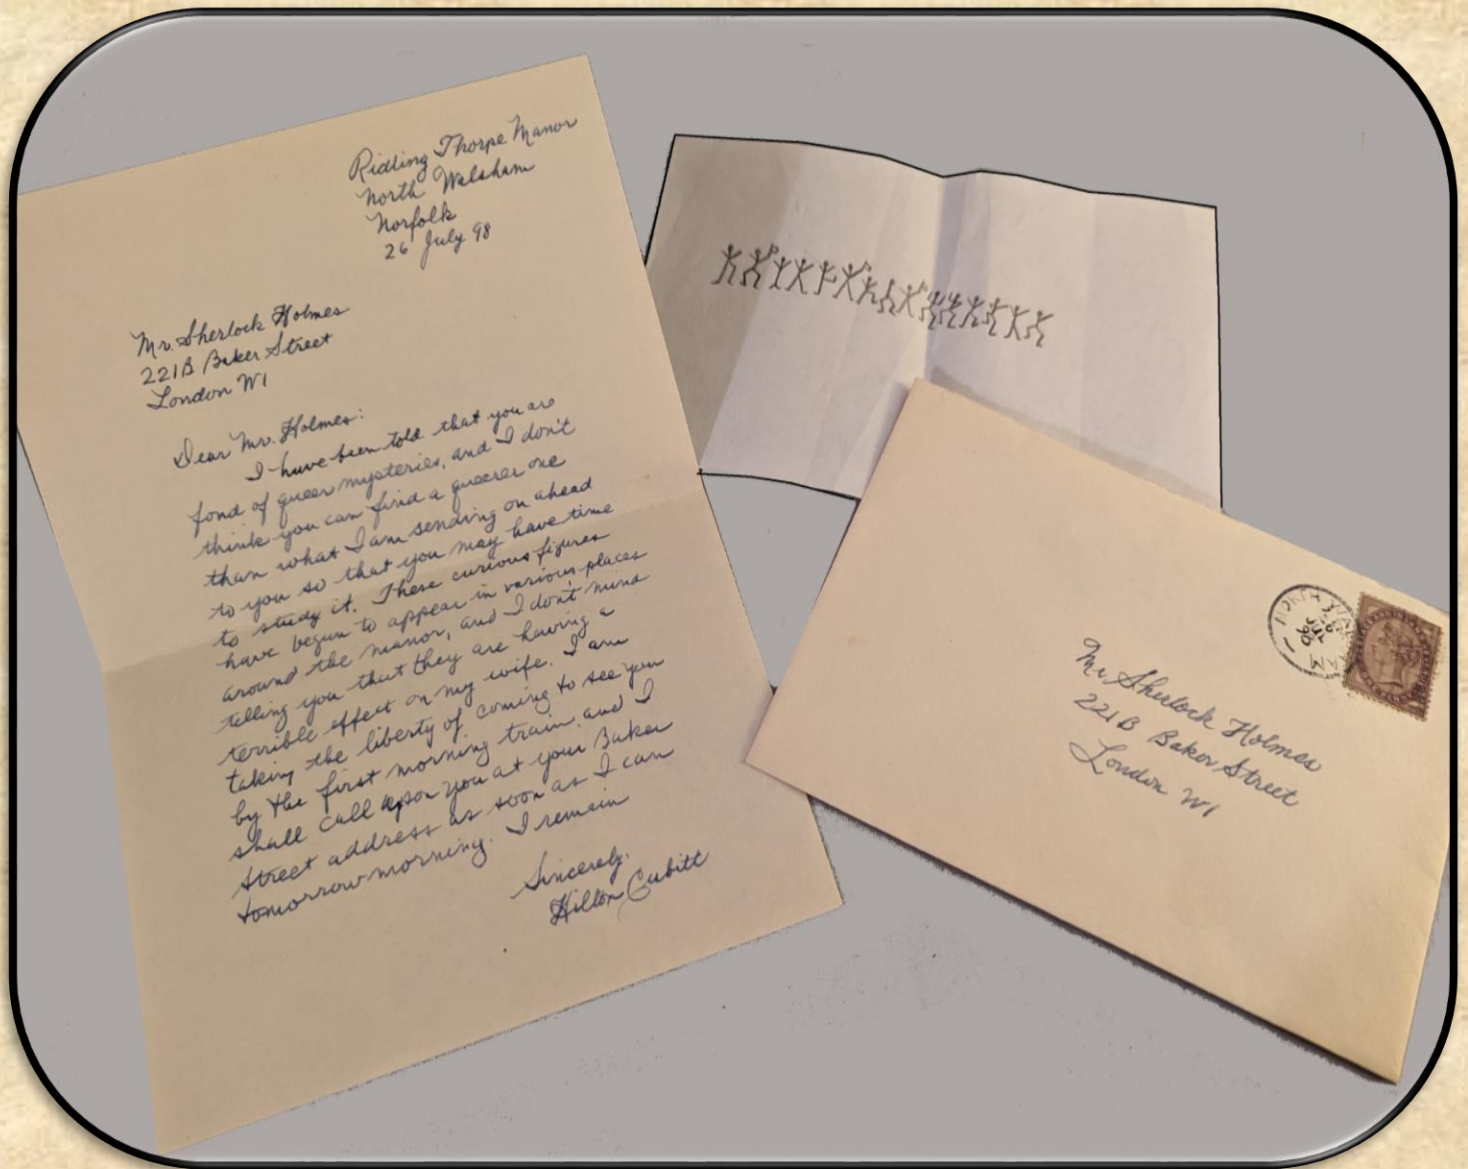 Ridling Thorpe Manor
North Walsham
Norfolk
26 July 98
Mr. Sherlock Holmes
221B Baker Street
London W1
Dear Mr. Holmes:
I have been told that you are
fond of queer mysteries, and I don't
think you can find a queerer one
than what I am sending on ahead
to you so that you may have time
to study it. These curious figures
have begun to appear in various places
around the manor, and I don't mind
telling you that they are having a
terrible effect on my wife. I am
taking the liberty of coming to see you
by the first morning train and I
shall call upon you at your Baker
Street address as soon as I can
tomorrow morning. I remain
Sincerely,
Hilton Cubitt
Mr. Sherlock Holmes
221B Baker Street
London W1